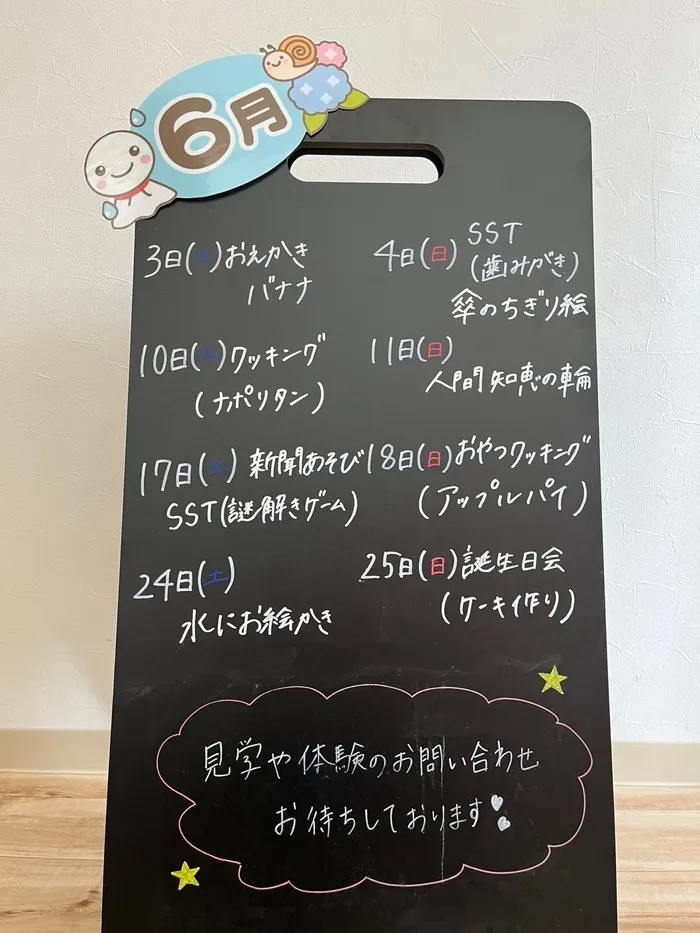 6月
3日(土)おえかき
バナナ
4日(日) SST
(歯みがき)
傘のちぎり絵
10日(土)クッキング
(ナポリタン)
11日(日)
人間知恵の輪
17日(土) 新聞あそび
SST(謎解きゲーム)
18日(日)おやつクッキング
(アップルパイ)
24日(土)
水にお絵かき
25日(日)誕生日会
(ケーキ作り)
見学や体験のお問い合わせ
お待ちしております